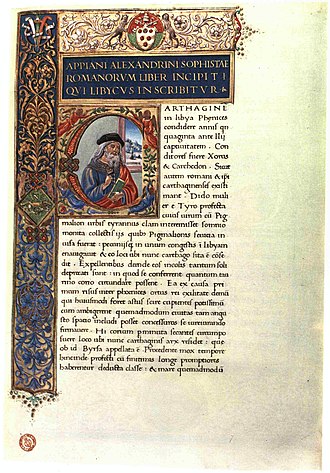 APPIANI ALEXANDRINI SOPHISTAE
ROMANORVM LIBER INCIPIT I
QVI LIBYCVS INSCRIBITVR
ARTHAGINE
in libya Phenices
condidere annis qui
quaginta ante Ilii
captiuitatem. Con
ditores fuere Xorus
& Carchedon. Siue
autem romani & ipsi
carthaginenses existi
mant: Dido muli
er e Tyro profecta
cuius uirum cum Pig
malion urbis tyrannus clam interemisset somnio
monita collectis iis quibus Pigmalionis seruitia in
uisa fuerat: premissisque in unum congestis i libyam
enauigauit & eo loci ubi nunc carthago sita e cose
dit. Expellentibus dinde eos incolis tantum soli
deprecati sunt: in quo se conferent quantum tau
rino corio circundare possent.
primum risus inter phoenices ortus
qui huiusmodi foret astus scire cupientes potissimum
cum ambigerent quemadmodum ciuitas tam angu
sto spatio includi posset concessuros se iureiurando
firmauere. Hi corium in
fuere loco ubi nunc carthaginis arx residet: qu
ob id Byrsa appellata e. Procedente mox tempore
hincinde profecti cu finitimis longe promptiores
haberentur deducta classe: & mare quemadmodu